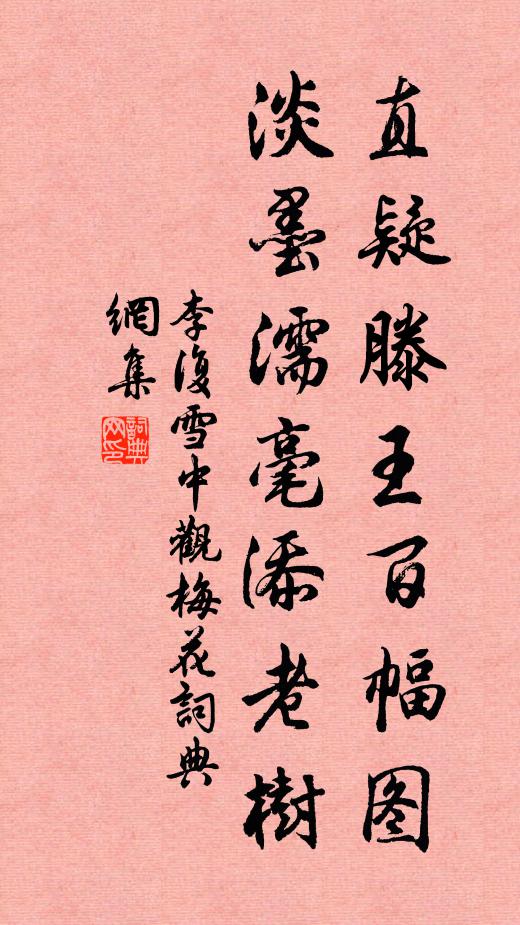 直疑滕王百幅图
淡墨濡毫添老樹
李復雪中觀梅花詞典
網集
詞典
网印